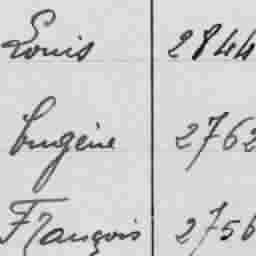 Louis 2844
Eugène 2762
François 2756